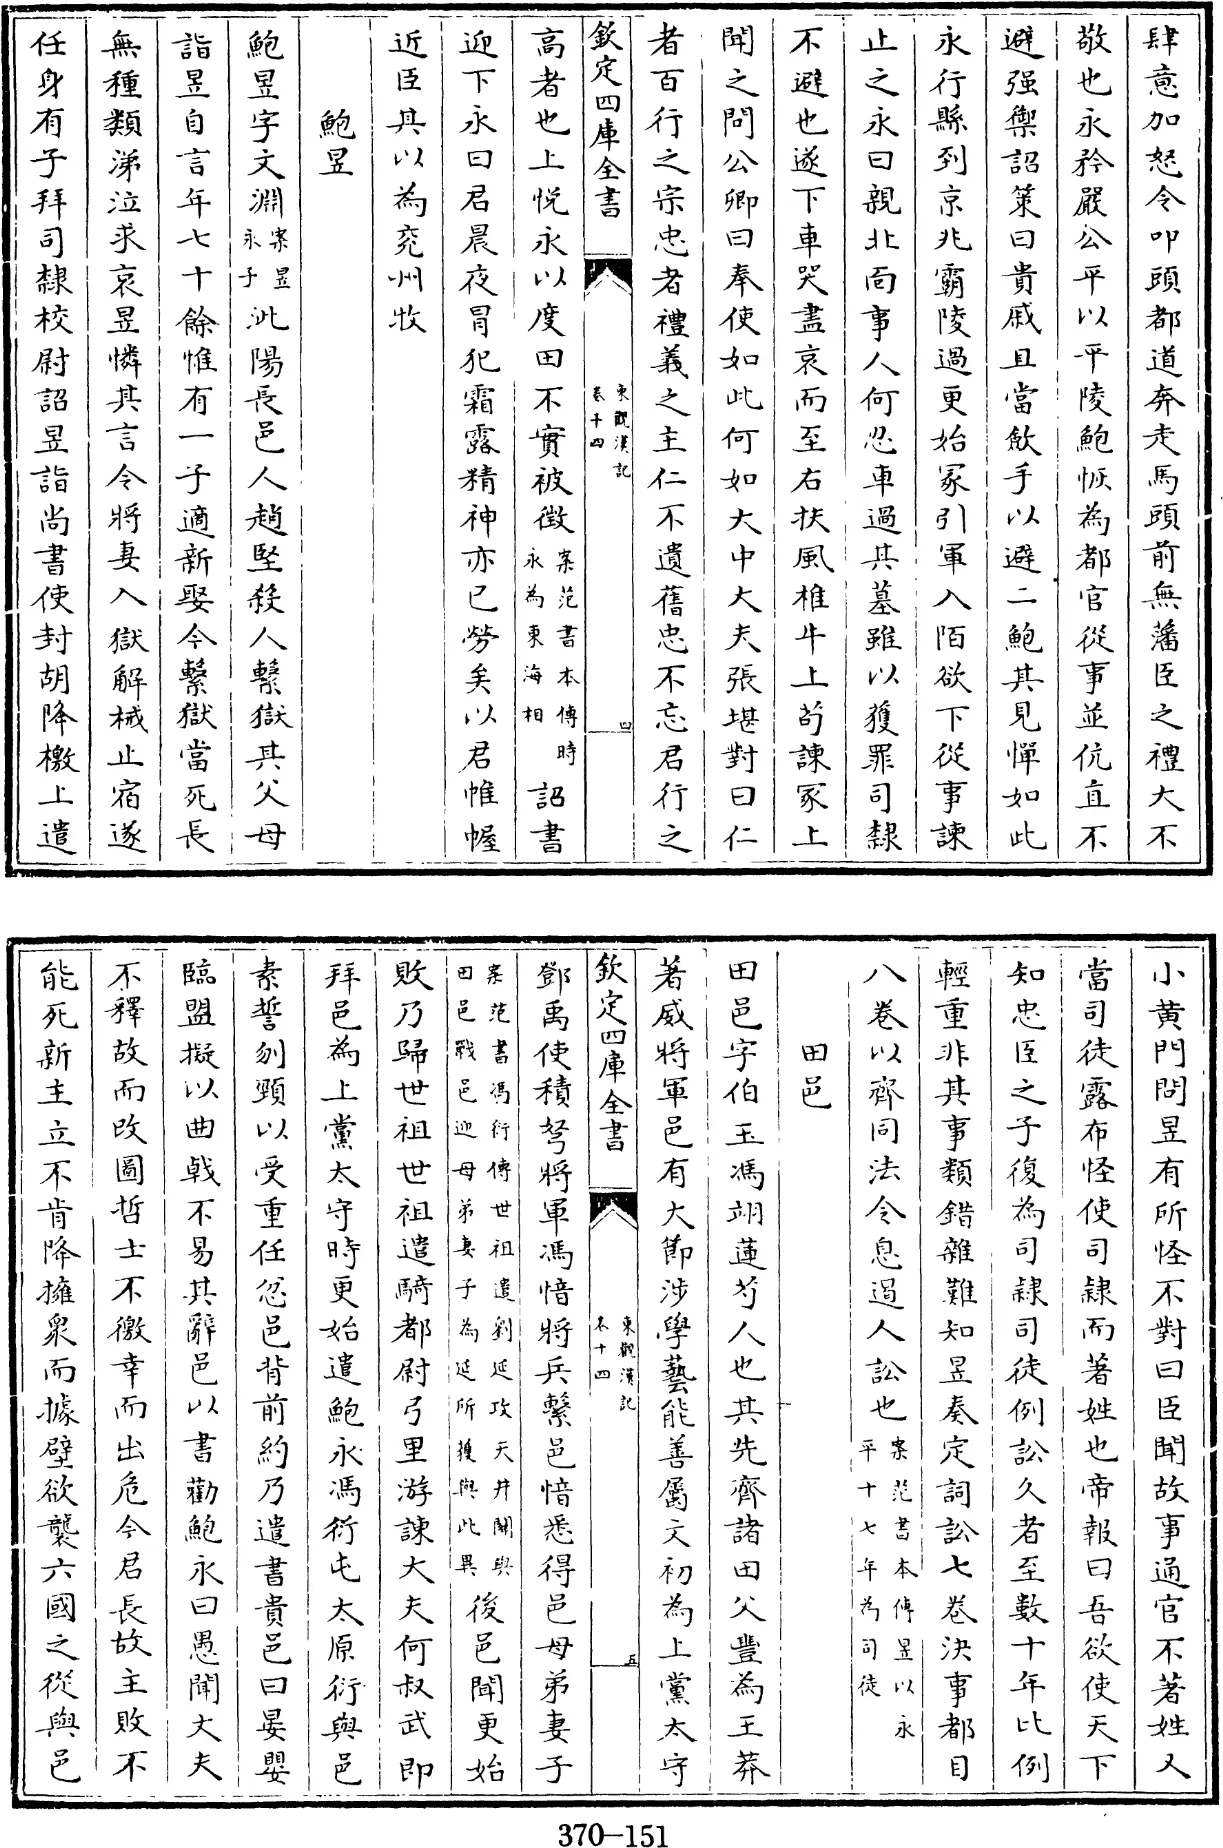 肆意加怒令叩頭都道奔走馬頭前無藩臣之禮大不
敬也永矜嚴公平以平陵鮑恢為都官從事並伉直不
避强禦詔策曰貴戚且當歛手以避二鮑其見憚如此
永行縣列京兆霸陵過更始冢引軍入陌欲下從事諫
止之永曰親北靣事人何忍車過其墓雖以獲罪司隸
不避也遂下車哭盡哀而至右扶風椎牛上茍諫冢上
聞之問公卿曰奉使如此何如大中大夫張堪對曰仁
者百行之宗忠者禮義之主仁不遺舊忠不忘君行之
欽定四庫全書
東觀漢記
卷十四
四
高者也上悅永以度田不實被徵案范書本傳時永為東海相詔書
迎下永曰君晨夜冐犯霜露精神亦已勞矣以君帷幄
近臣其以為兗州牧
鮑昱
鮑昱字文淵案昱永子沘陽長邑人趙堅殺人繫獄其父母
詣昱自言年七十餘惟有一子適新娶今繫獄當死長
無種類涕泣求哀昱憐其言令將妻入獄解械止宿遂
任身有子拜司隸校尉詔昱詣尚書使封胡降檄上遣
小黄門問昱有所怪不對曰臣聞故事通官不著姓又
當司徒露布怪使司隸而著姓也帝報曰吾欲使天下
知忠臣之子復為司隸司徒例訟久者至數十年比例
輕重非其事類錯雜難知昱奏定詞訟七卷決事都目
八卷以齊同法令息遏人訟也案范書本傳昱以永平十七年為司徒
田邑
田邑字伯玉馮翊蓮芍人也其先齊諸田父豐為王莽
著威將軍邑有大節涉學藝能善屬文初為上黨太守
欽定四庫全書
東觀漢記
卷十四
五
鄧禹使積弩將軍馮愔將兵繫邑愔悉得邑母弟妻子
案范書馮衍傳世祖遣劉延攻天井關與田邑戰邑迎母弟妻子為延所獲與此異後邑聞更始
敗乃歸世祖世祖遣騎都尉弓里游諫大夫何叔武即
拜邑為上黨太守時更始遣鮑永馮衍屯太原衍與邑
素誓刎頸以受重任忿邑背前約乃遣書責邑曰晏嬰
臨盟擬以曲戟不易其辭邑以書勸鮑永曰愚聞丈夫
不釋故而改圖哲士不徼幸而出危今君長故主敗不
能死新主立不肯降擁衆而據壁欲襲六國之從與邑
370-151